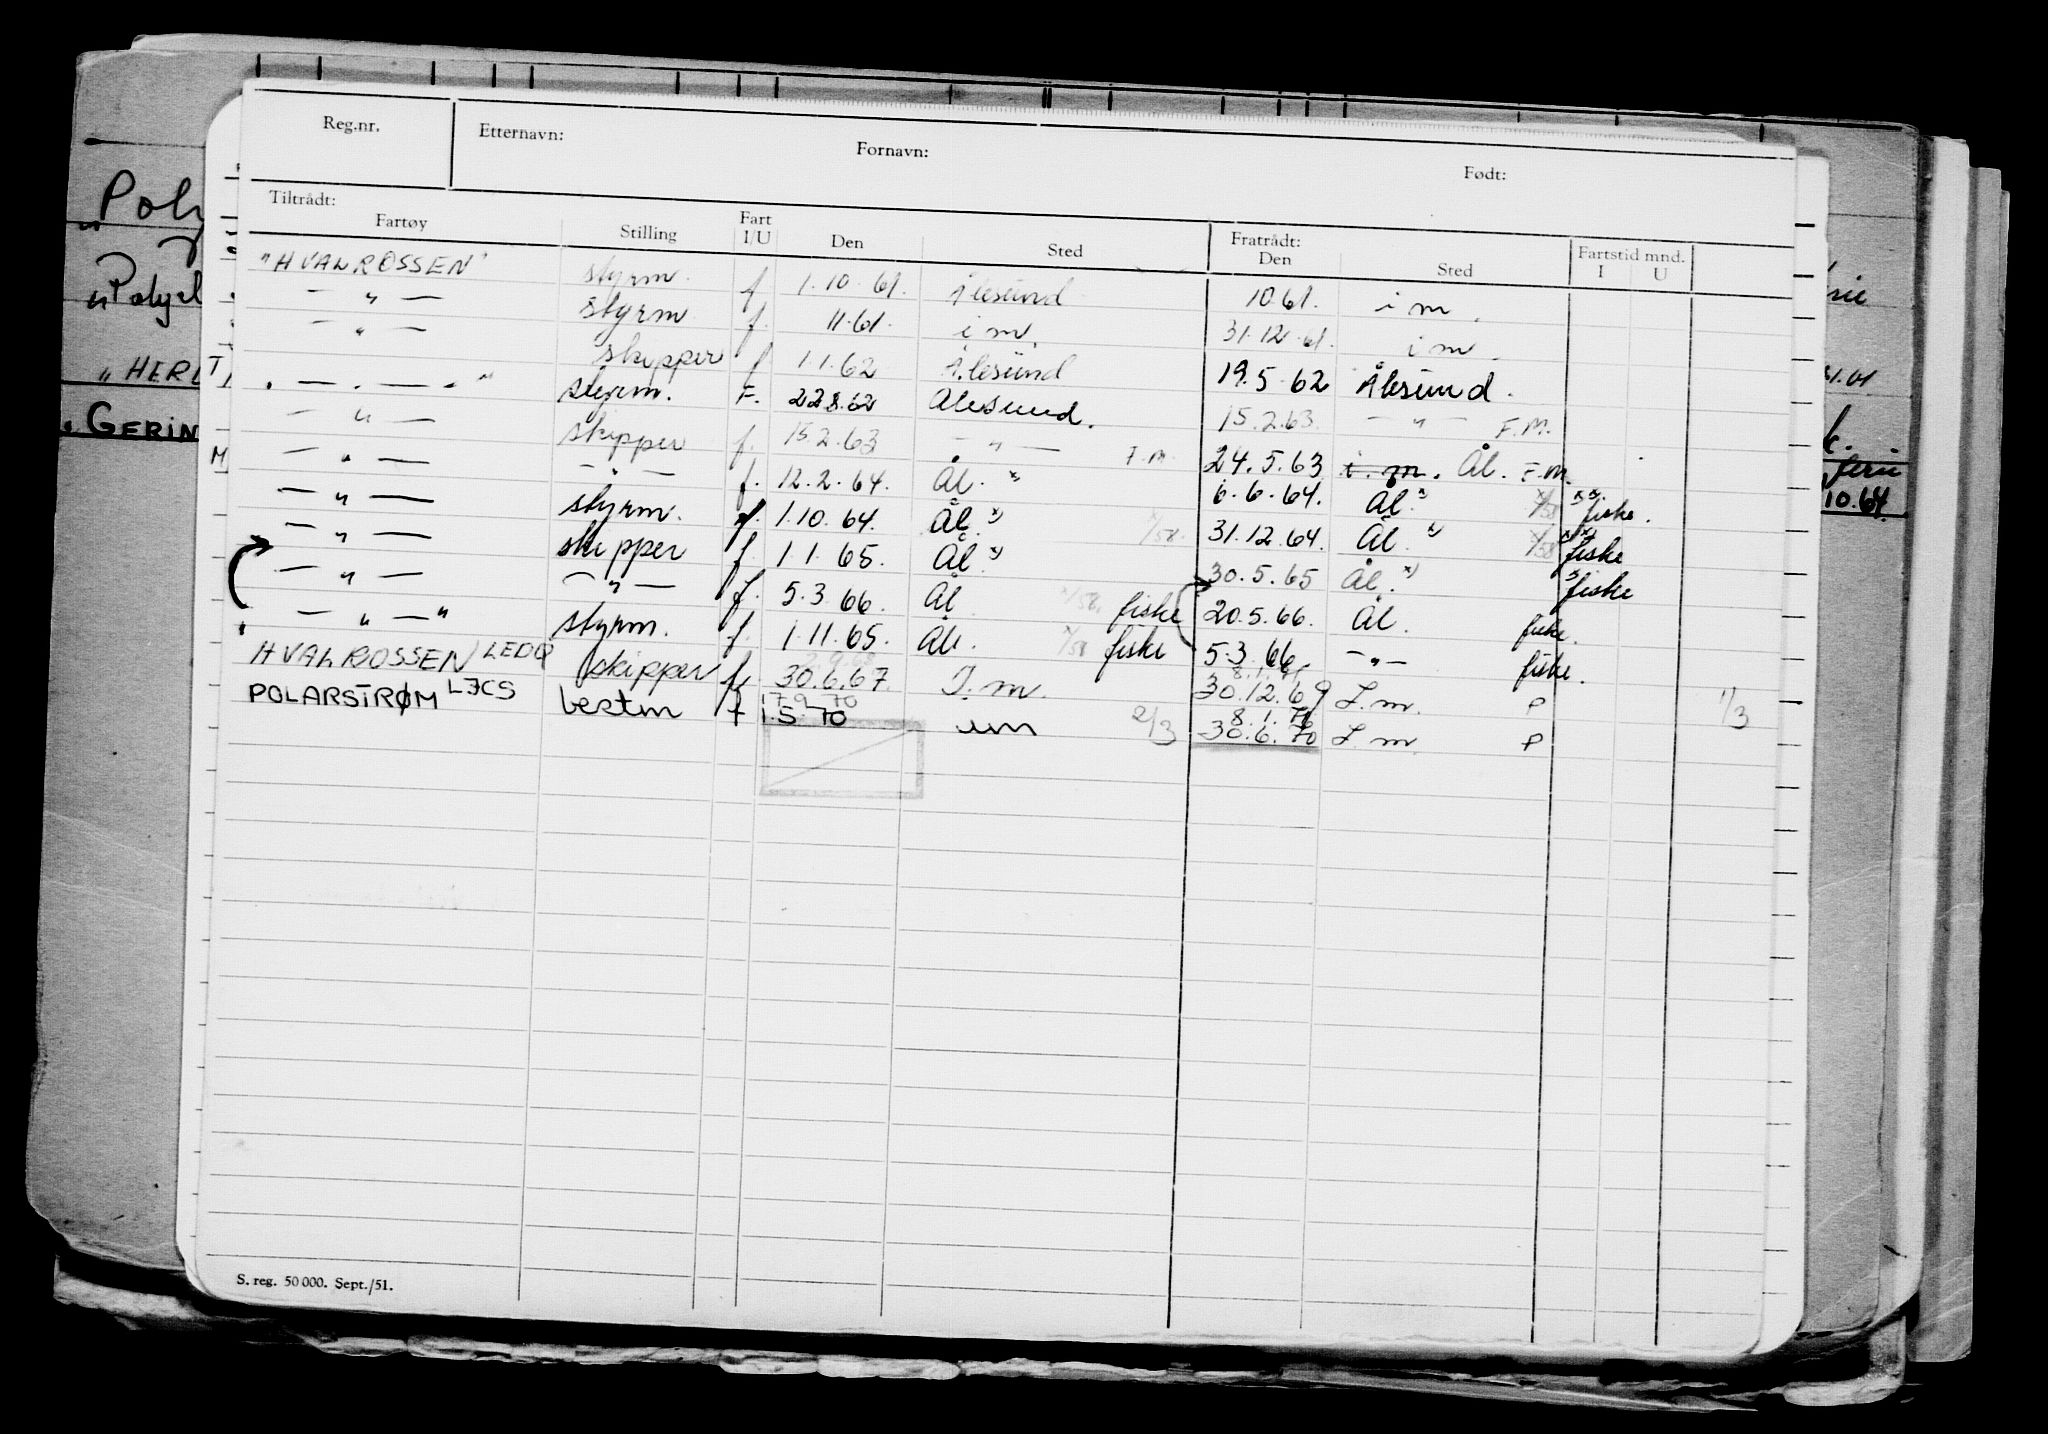 Reg.nr. Etternavn: Fornavn: Født:
Tiltrådt: Fratrådt:
Fartøy Stilling Fart I/U Den Sted Den Sted Fartstid mnd. I U
"HVALROSSEN" styrm. f 1.10.61. Ålesund 10.61. i m.
— " — styrm f. 11.61. i m. 31.12.61. i m.
— " — skipper f 1.1.62 Ålesund 19.5.62 Ålesund.
. — . — . — " styrm. F. 22.8.62 Ålesund. 15.2.63. — " — F.M.
— " — skipper f. 15.2.63 — " — F.M. 24.5.63 i. m. Ål. F.M.
— " — — " — f. 12.2.64. Ål. x) 6.6.64. Ål. x) x/58 xx. fiske.
— " — styrm. f. 1.10.64. Ål. x) x/58. 31.12.64. Ål. x) x/58 xx) fiske
— " — skipper f. 1.1.65. Ål. x) 30.5.65 Ål. x) x fiske
— " — — " — f. 5.3.66. Ål x/58. fiske 20.5.66. Ål. fiske.
— " — " styrm. f. 1.11.65. Ål. x/58 fiske 5.3.66. — " — fiske.
HVALROSSEN LEDQ skipper f 30.6.67. I.m. 30.12.69 I.m. P 1/3
POLARSTRØM L7CS bestm f 17.9.70
1.5.70 im 2/3 8.1.71
30.6.70 I.m. P
S. reg. 50 000. Sept./51.
Poly
"Polyel
"HERL
T
. GERIN
M
31.01
ferie
10.64.